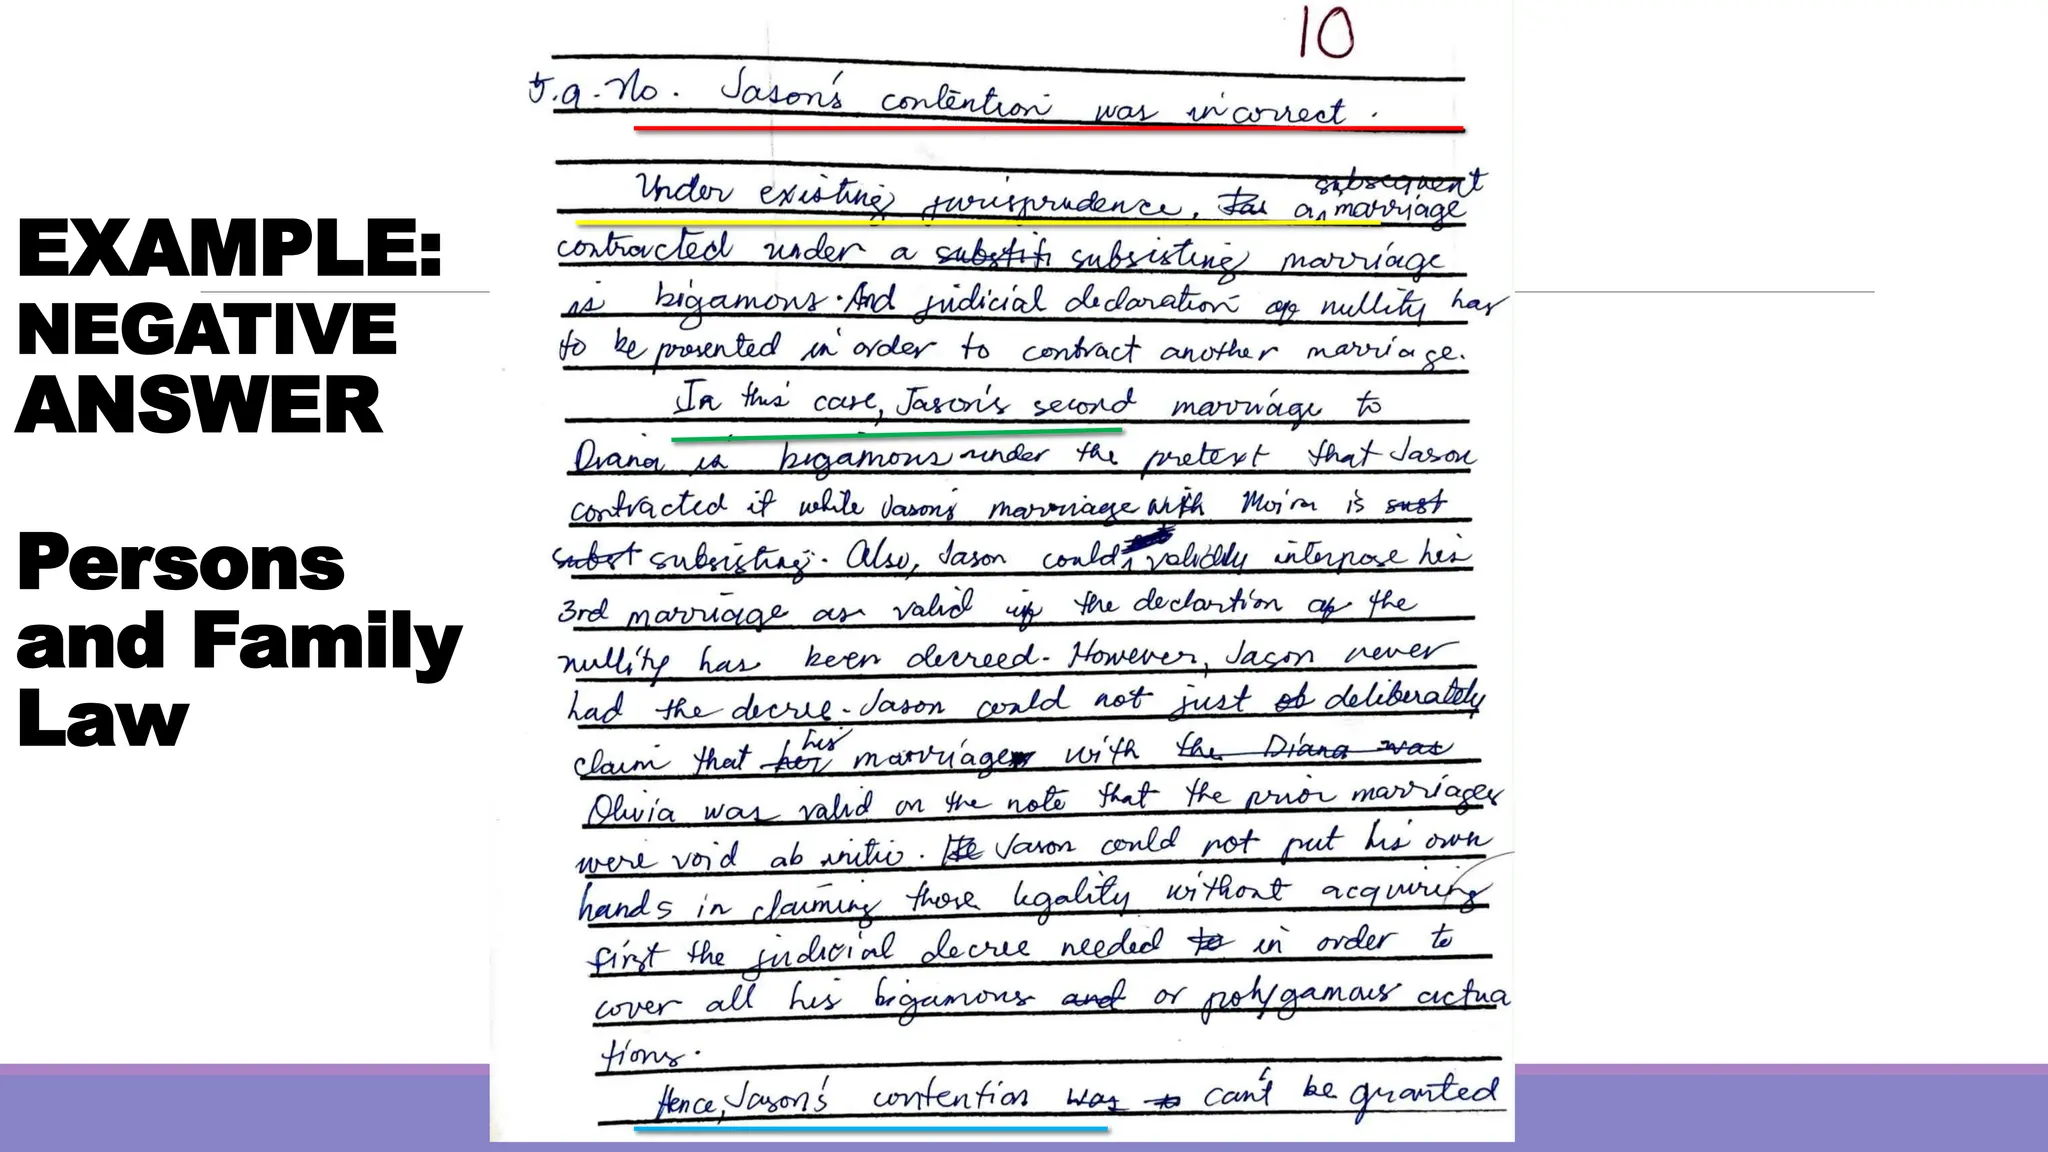 EXAMPLE:
NEGATIVE
ANSWER
Persons
and Family
Law
10
J.a. No. Jason's contention was incorrect.
Under existing jurisprudence, a subsequent marriage
contracted under a subsisting marriage
is bigamous. And judicial declaration of nullity has
to be presented in order to contract another marriage.
In this case, Jason's second marriage to
Diana is bigamous under the pretext that Jason
contracted it while Jason's marriage with Moira is
subsisting. Also, Jason could validly interpose his
3rd marriage as valid if the declartion of the
nullity has been decreed. However, Jason never
had the decree. Jason could not just deliberately
claim that his marriage with the Diana was
Olivia was valid on the note that the prior marriages
were void ab initio. Jason could not put his own
hands in claiming those legality without acquiring
first the judicial decree needed to in order to
cover all his bigamous and or polygamous actua
tions.
Hence, Jason's contention was to can't be granted